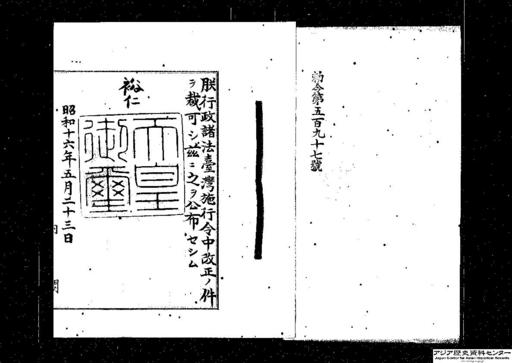 勅令第五百九十七號
朕行政諸法臺灣施行令中改正ノ件
ヲ裁可シ茲ニ之ヲ公布セシム
裕仁
天皇
御璽
昭和十六年五月二十三日
アジア歴史資料センター
Japan Center for Asian Historical Records